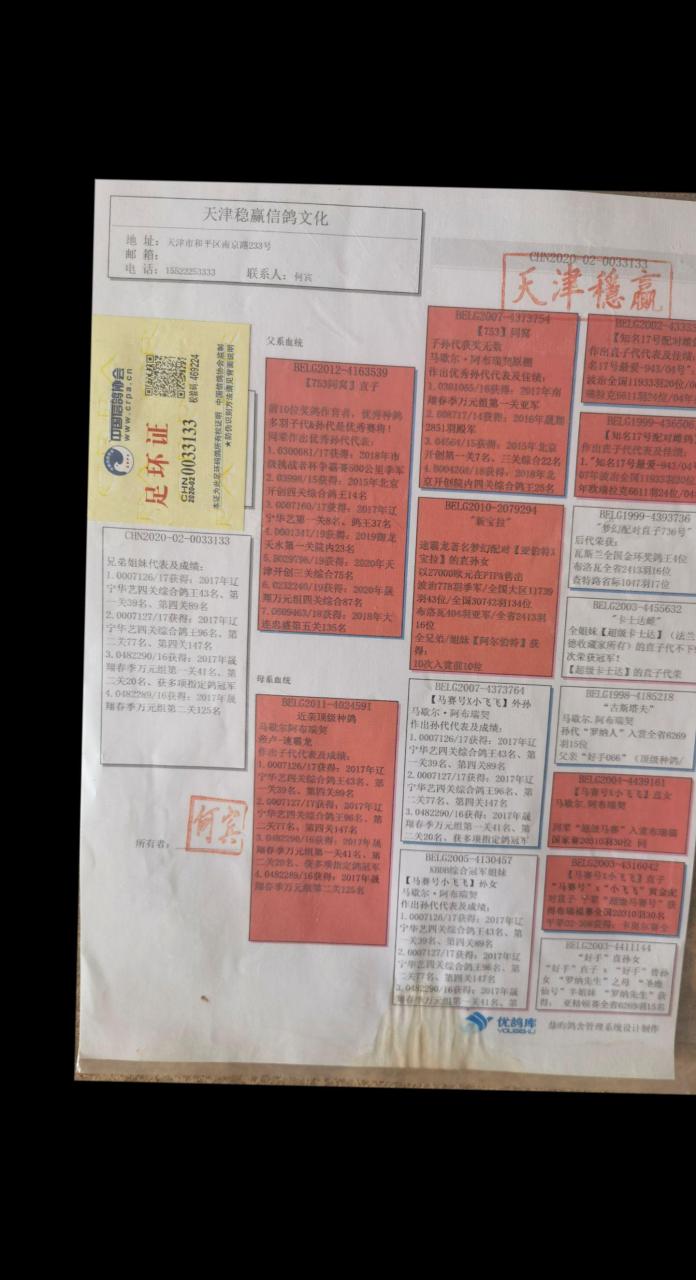 天津稳赢信鸽文化
地 址：天津市和平区南京路233号
邮 箱：
电 话：15522253333 联系人：何宾
CHN2020-02-0033133
天津穩贏
中国信鸽协会
www.crpa.cn
足环证
CHN 2020-02 0033133
校验码 469224
本证为此足环信鸽所有权证明 中国信鸽协会监制
★防伪识别方法请见背面说明
CHN2020-02-0033133
兄弟姐妹代表及成绩：
1.0007126/17获得：2017年辽
宁华艺四关综合鸽王43名、第
一关39名、第四关89名
2.0007127/17获得：2017年辽
宁华艺四关综合鸽王96名、第
二关77名、第四关147名
3.0482290/16获得：2017年晟
翔春季万元组第一关41名、第
二关20名、获多项指定鸽冠军
4.0482289/16获得：2017年晟
翔春季万元组第二关125名
所有者：
何宾
父系血统
BELG2012-4163539
【753同窝】直子
前10位奖鸽作育者，优秀种鸽
多羽子代&孙代是优秀赛将！
同辈作出优秀孙代代表：
1.0300681/17获得：2018年市
级挑战者杯争霸赛500公里季军
2.03998/15获得：2015年北京
开创四关综合鸽王14名
3.0007160/17获得：2017年辽
宁华艺第一关8名、鸽王37名
天水第一关院内23名
津开创三关综合75名
翔万元组四关综合87名
连忠盛第五关135名
母系血统
BELG2011-4024591
近亲顶级种鸽
马歇尔阿布瑞契
帝卢-速霸龙
作出子代代表及成绩：
1.0007126/17获得：2017年辽
宁华艺四关综合鸽王43名、第
一关39名、第四关89名
2.0007127/17获得：2017年辽
宁华艺四关综合鸽王96名、第
二关77名、第四关147名
3.0482290/16获得：2017年晟
翔春季万元组第一关41名、第
二关20名、获多项指定鸽冠军
4.0482289/16获得：2017年晟
翔春季万元组第二关125名
BELG2007-4373754
【753】同窝
子孙代获奖无数
马歇尔·阿布瑞契原棚
作出优秀孙代代表及佳绩：
1.0301065/16获得：2017年南
翔春季万元组第一关亚军
2.008717/14获得：2016年晟翔
2851羽殿军
3.04564/15获得：2015年北京
开创第一关7名、三关综合22名
4.8004268/18获得：2018年北
京开创院内四关综合鸽王25名
BELG2010-2079294
“新宝拉”
速霸龙著名梦幻配对【亚伯特X
宝拉】的直孙女
以27000欧元在PIPA售出
波治778羽季军/全国大区11739
羽43位/全国30742羽134位
布洛瓦404羽亚军/全省2413羽
16位
全兄弟/姐妹【阿尔伯特】获
得：
10次入赏前10位
BELG2007-4373764
【马赛号X小飞飞】外孙
马歇尔·阿布瑞契
作出孙代代表及成绩：
1.0007126/17获得：2017年辽
宁华艺四关综合鸽王43名、第
一关39名、第四关89名
2.0007127/17获得：2017年辽
宁华艺四关综合鸽王96名、第
二关77名、第四关147名
3.0482290/16获得：2017年晟
翔春季万元组第一关41名、第
二关20名、获多项指定鸽冠军
BELG2005-4130457
KBDB综合冠军姐妹
【马赛号小飞飞】孙女
马歇尔·阿布瑞契
作出孙代代表及成绩：
1.0007126/17获得：2017年辽
宁华艺四关综合鸽王43名、第
一关39名、第四关89名
2.0007127/17获得：2017年辽
宁华艺四关综合鸽王96名、第
二关77名、第四关147名
3.0482290/16获得：2017年晟
翔春季万元组第一关41名、第
【知名17号配对雄
作出直子代代表及佳绩：
名17号最爱-943/04号”
波治全国11933羽20位/0
瑞拉克6611羽24位/04年
BELG1999-436506
【知名17号配对雌
作出直子代代表及佳绩：
1.“知名17号最爱-943/04
07年波治全国11933羽20位
年欧瑞拉克6611羽24位/04
BELG1999-4393736
“梦幻配对直子736号”
后代荣获：
瓦斯兰全国金环奖鸽王4位
布洛瓦全省2413羽16位
查特路省标1047羽17位
BELG2003-4455632
“卡士达雌”
全姐妹【超级卡士达】（法兰
德收藏家所有）的直子代不下
次荣获冠军！
【超级卡士达】的直子代荣
BELG1998-4185218
“古斯塔夫”
马歇尔·阿布瑞契
孙代“罗纳人”入赏全省6269
羽15位
父亲“好手066”（顶级种鸽/
BELG2004-4439161
【马赛号X小飞飞】直女
马歇尔.阿布瑞契
同辈“超级马赛”入赏布瑞福
国家赛20310羽30位 同
BELG2003-4316042
【马赛号X小飞飞】直子
“马赛号”x“小飞飞”黄金配
得布瑞福赛全国20310羽30名
BELG2003-4411144
“好手”直孙女
“好手”直子 x “好手”曾孙
女 “罗纳先生”之母 “圣维
仙号”半姐妹 “罗纳先生”获
得： 亚格顿赛全省6269羽15名
优鸽库
鸽舍管理系统设计制作